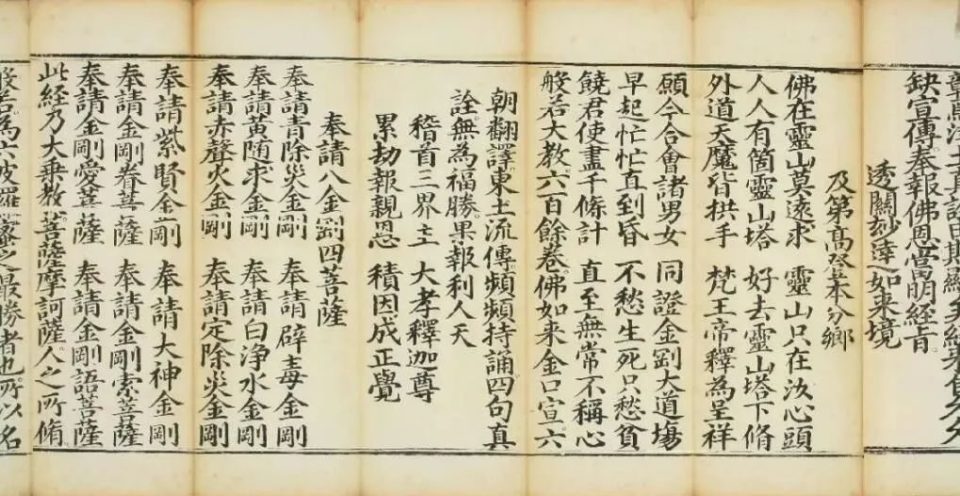 缺宣傳奉報佛恩當明經旨
透關玅逺如来境
及第高登本分鄉
佛在靈山莫遠求 靈山只在汝心頭
人人有箇靈山塔 好去靈山塔下脩
外道天魔皆拱手 梵王帝釋為呈祥
願今合會諸男女 同證金剛大道場
早起忙忙直到昏 不愁生死只愁貧
饒君使盡千條計 直至無常不稱心
般若大教六百餘卷佛如来金口宣六
朝翻譯東土流傳頻頻持誦四句真
詮無為福勝果報利人天
稽首三界主 大孝釋迦尊
累劫報親恩 積因成正覺
奉請八金剛四菩薩
奉請青除災金剛 奉請辟毒金剛
奉請黃随求金剛 奉請白净水金剛
奉請赤聲火金剛 奉請定除災金剛
奉請紫賢金剛 奉請大神金剛
奉請金剛眷菩薩 奉請金剛索菩薩
奉請金剛愛菩薩 奉請金剛語菩薩
此経乃大乗教菩薩摩訶薩人之所脩
般若為六波羅蜜之最勝者也所以名